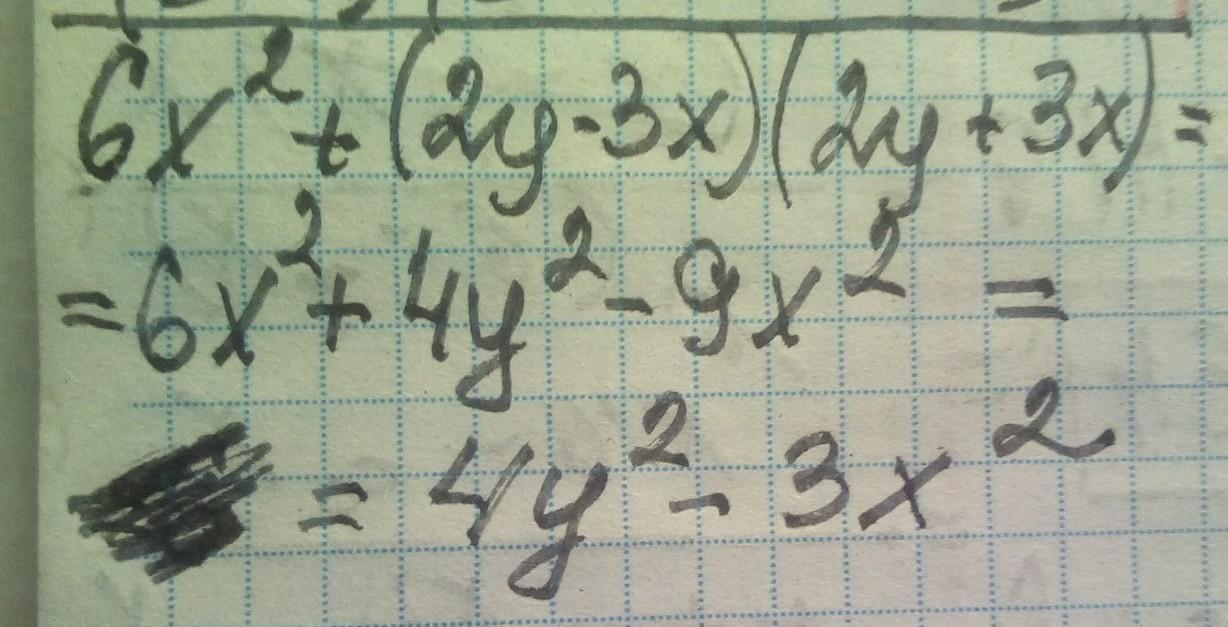 6x² + (2y - 3x)(2y + 3x) =
= 6x² + 4y² - 9x² =
= 4y² - 3x²